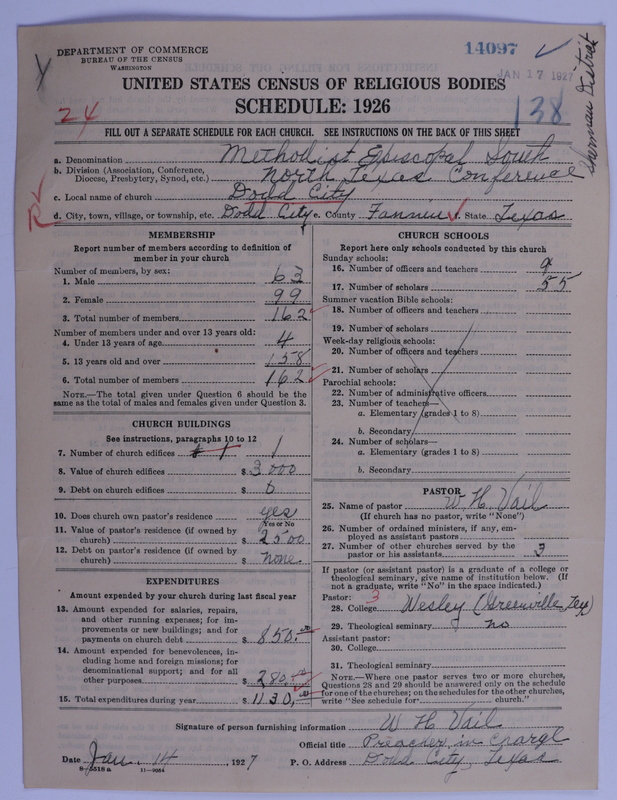 DEPARTMENT OF COMMERCE
BUREAU OF THE CENSUS
WASHINGTON
14097
JAN 17 1927
Sherman District
UNITED STATES CENSUS OF RELIGIOUS BODIES
SCHEDULE: 1926
24
138
FILL OUT A SEPARATE SCHEDULE FOR EACH CHURCH. SEE INSTRUCTIONS ON THE BACK OF THIS SHEET
a. Denomination Methodist Episcopal South
b. Division (Association, Conference, Diocese, Presbytery, Synod, etc.) North Texas Conference
c. Local name of church Dodd City
R
d. City, town, village, or township, etc. Dodd City e. County Fannin f. State Texas
MEMBERSHIP
Report number of members according to definition of
member in your church
Number of members, by sex:
1. Male 63
2. Female 99
3. Total number of members 162
Number of members under and over 13 years old:
4. Under 13 years of age 4
5. 13 years old and over 158
6. Total number of members 162
NOTE.—The total given under Question 6 should be the
same as the total of males and females given under Question 3.
CHURCH BUILDINGS
See instructions, paragraphs 10 to 12
7. Number of church edifices 1
8. Value of church edifices $ 3000
9. Debt on church edifices $ 0
10. Does church own pastor's residence yes
(Yes or No)
11. Value of pastor's residence (if owned by
church) $ 2500
12. Debt on pastor's residence (if owned by
church) $ none
EXPENDITURES
Amount expended by your church during last fiscal year
13. Amount expended for salaries, repairs,
and other running expenses; for im-
provements or new buildings; and for
payments on church debt $ 850.00
14. Amount expended for benevolences, in-
cluding home and foreign missions; for
denominational support; and for all
other purposes $ 280.00
15. Total expenditures during year $ 1130.00
CHURCH SCHOOLS
Report here only schools conducted by this church
Sunday schools:
16. Number of officers and teachers 9
17. Number of scholars 55
Summer vacation Bible schools:
18. Number of officers and teachers
19. Number of scholars
Week-day religious schools:
20. Number of officers and teachers
21. Number of scholars
Parochial schools:
22. Number of administrative officers
23. Number of teachers—
a. Elementary (grades 1 to 8)
b. Secondary
24. Number of scholars—
a. Elementary (grades 1 to 8)
b. Secondary
PASTOR
25. Name of pastor W H Vail
(If church has no pastor, write "None")
26. Number of ordained ministers, if any, em-
ployed as assistant pastors
27. Number of other churches served by the
pastor or his assistants 3
If pastor (or assistant pastor) is a graduate of a college or
theological seminary, give name of institution below. (If
not a graduate, write "No" in the space indicated.)
Pastor: 3
28. College Wesley (Greenville Tex)
29. Theological seminary no
Assistant pastor:
30. College
31. Theological seminary
NOTE.—Where one pastor serves two or more churches,
Questions 28 and 29 should be answered only on the schedule
for one of the churches; on the schedules for the other churches,
write "See schedule for church."
Signature of person furnishing information W H Vail
Official title Preacher in Charge
Date Jan. 14, 1927 P. O. Address Dodd City, Texas
8-5518a 11-9054